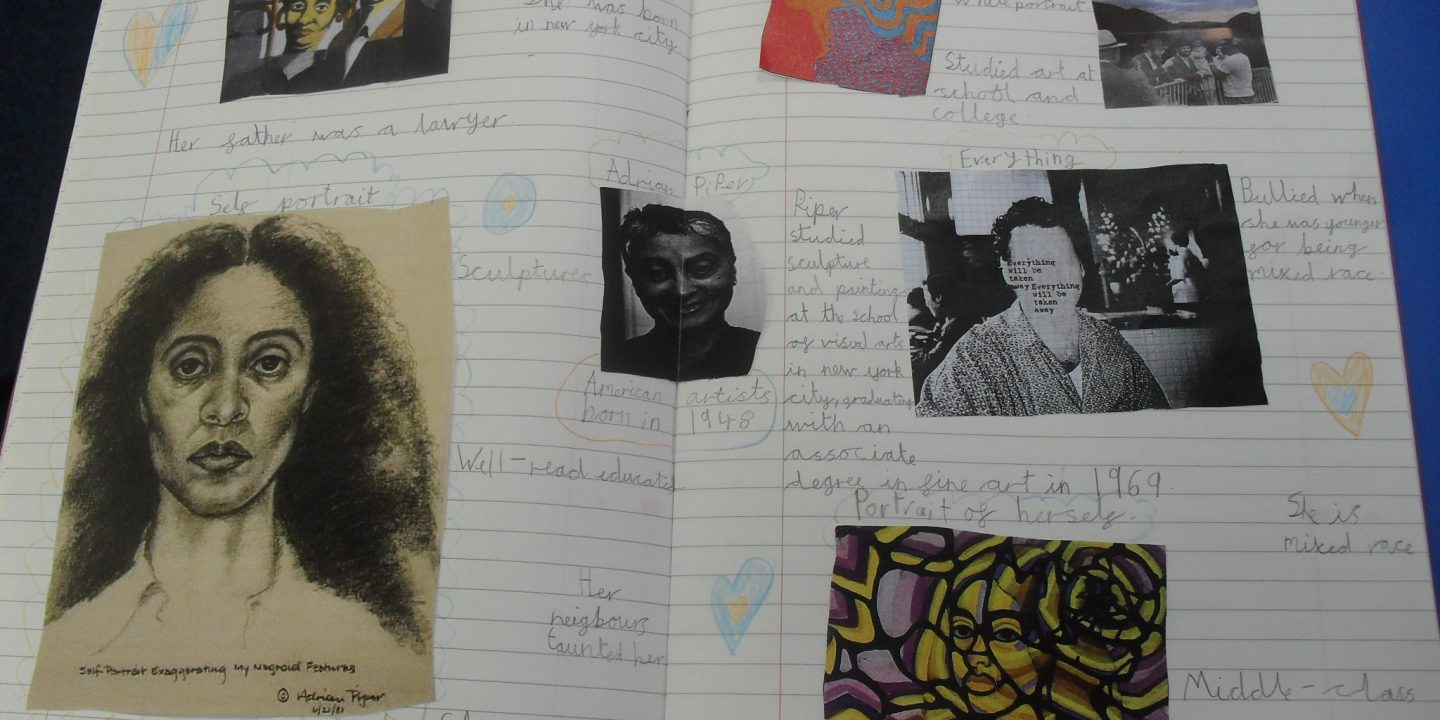 She was born
in new york
city
White portrait
Studied art at
school and
college
Her father was a lawyer
Self portrait
Sculptures
Well-read educated
Her
neigbours
taunted her
Self-Portrait Exaggerating My Negroid Features
© Adrian Piper
6/21/81
Adrian Piper
American artists
born in 1948
Piper
studied
sculpture
and painting
at the school
of visual arts
in new york
city, graduating
with an
associate
degree in fine art in 1969
Everything
Everything
will be
taken
away Everything
will be
taken
away
Bullied when
she was younger
for being
mixed race.
Portrait of herself.
She is
mixed race
Middle-class